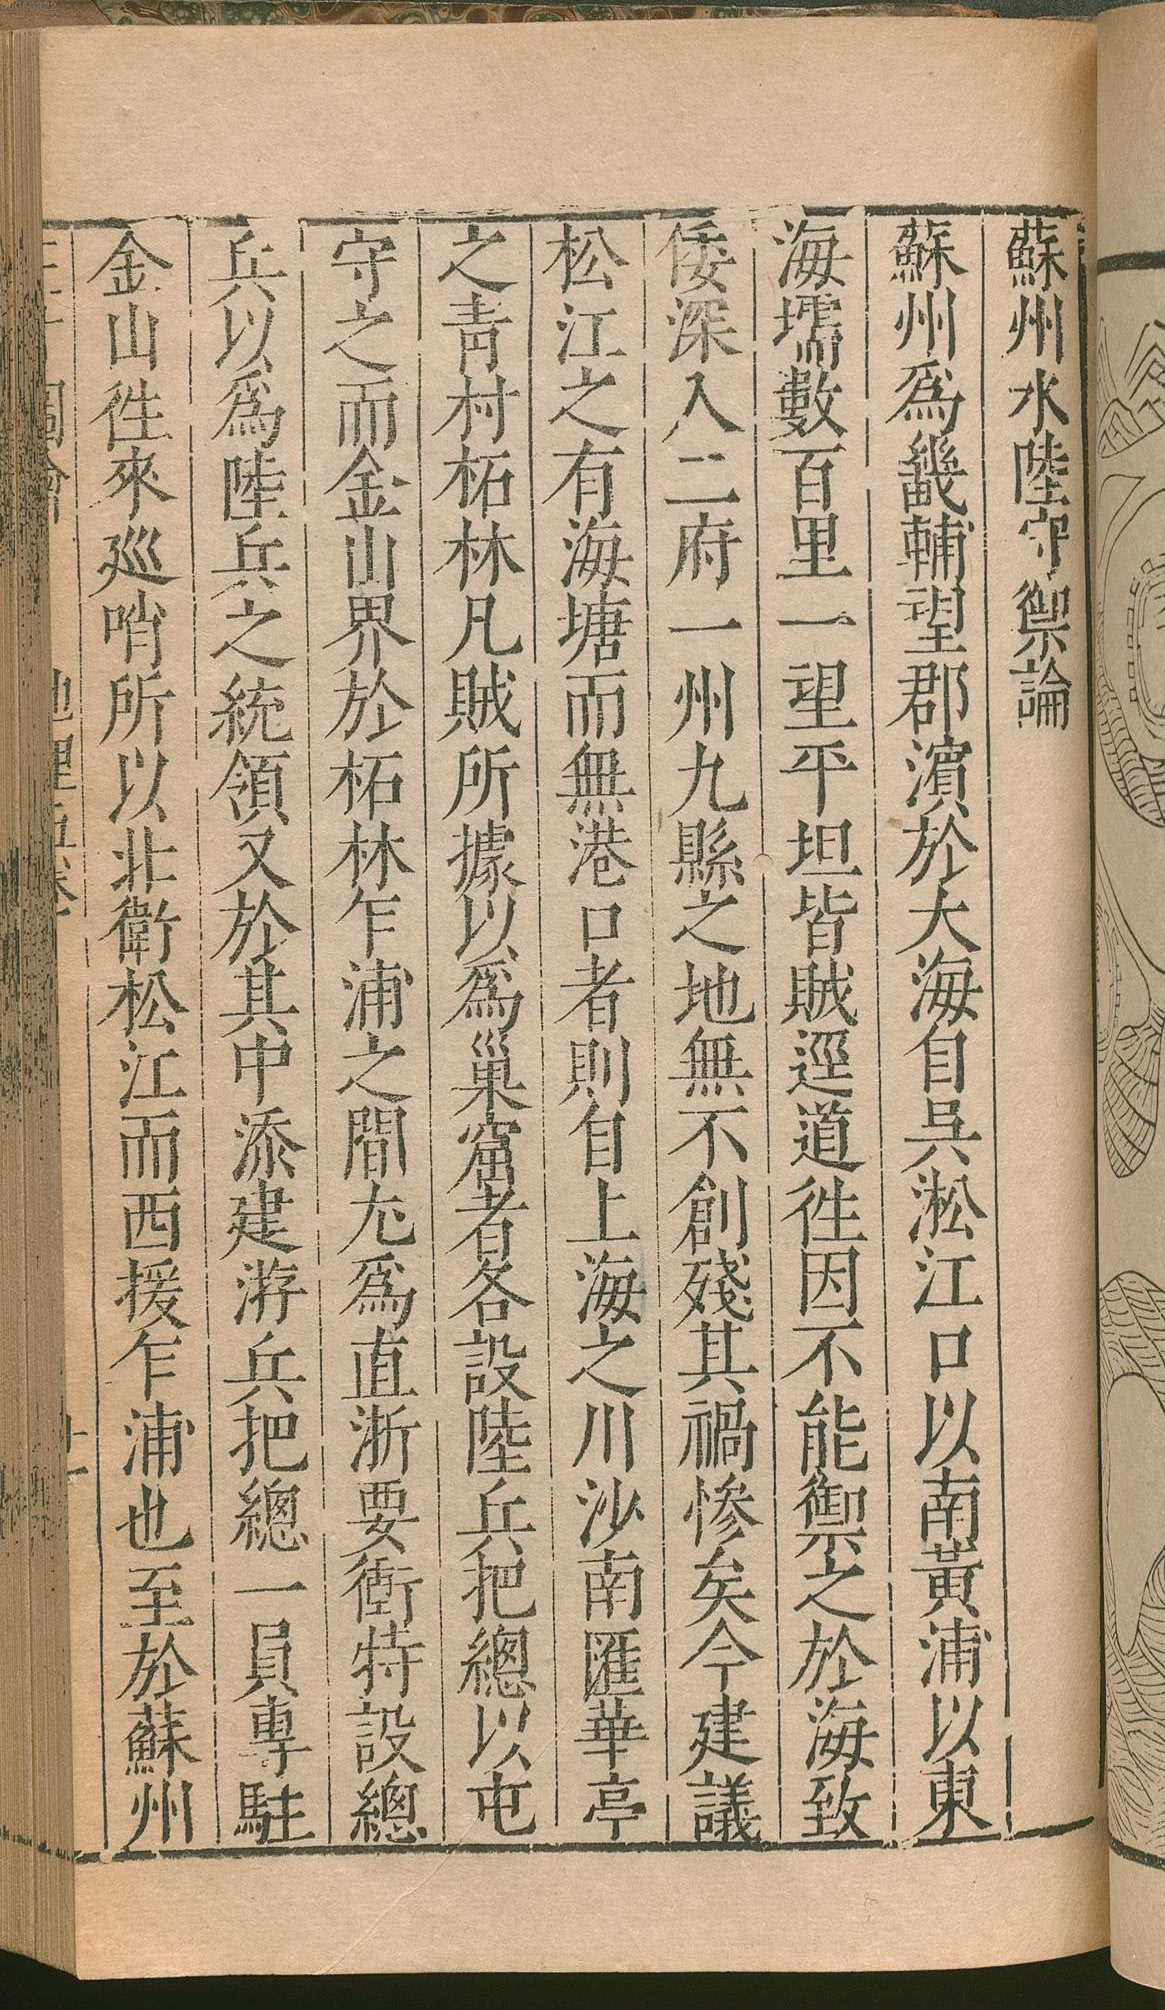 蘇州水陸守禦論
蘇州爲畿輔望郡濵於大海自吳淞江口以南黃浦以東
海壖數百里一望平坦皆賊逕道徃因不能禦之於海致
倭深入二府一州九縣之地無不創殘其禍惨矣今建議
松江之有海塘而無港口者則自上海之川沙南匯華亭
之青村柘林凡賊所據以爲巢窟者各設陸兵把總以屯
守之而金山界於柘林乍浦之間尤爲直浙要衝特設總
兵以爲陸兵之統領又於其中添建游兵把總一員專駐
金山徃來廵哨所以北衛松江而西援乍浦也至於蘇州
圖會 地理五卷